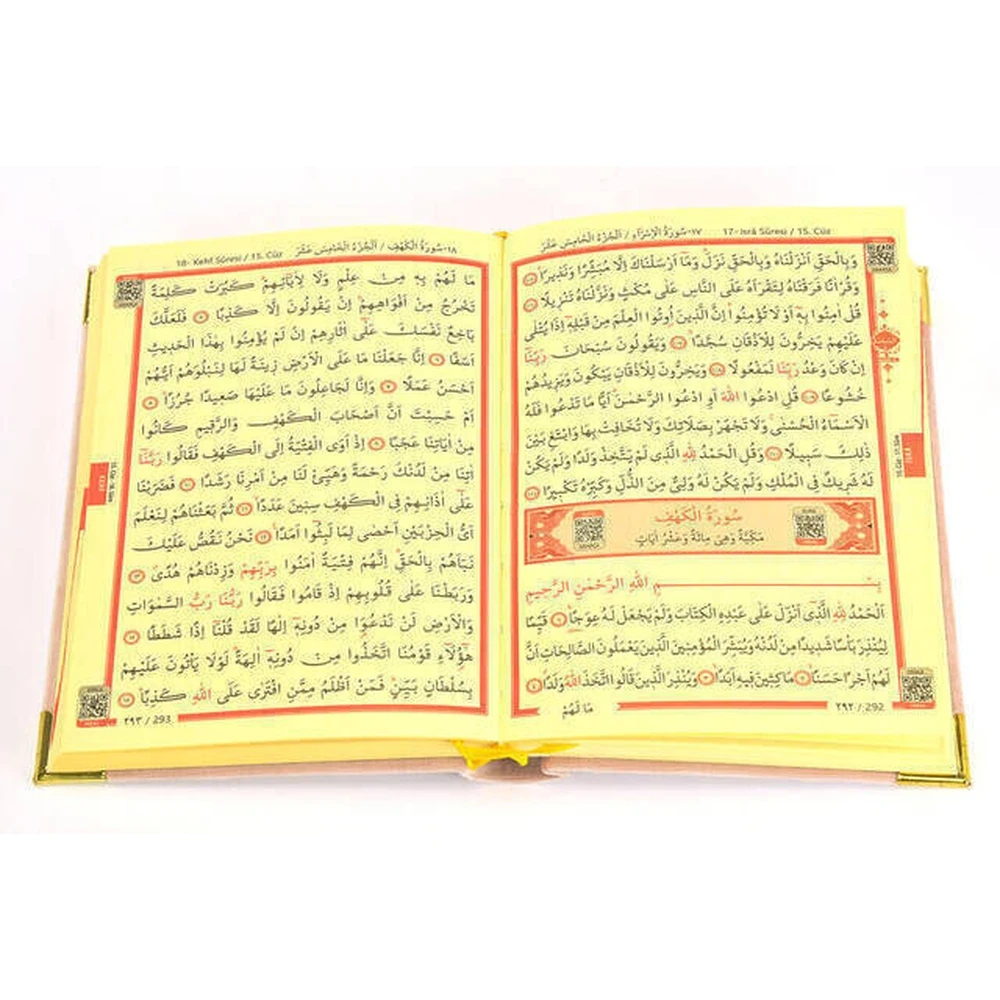 ١٧-سُورَةُ الْاِسْرَاءِ / اَلْجُزْءُ الْخَامِسَ عَشَرَ 17- Isrâ Sûresi / 15. Cüz
وَبِالْحَقِّ اَنْزَلْنَاهُ وَبِالْحَقِّ نَزَلَ وَمَا اَرْسَلْنَاكَ اِلَّا مُبَشِّرًا وَنَذِيرًا ١٠٥
وَقُرْاٰنًا فَرَقْنَاهُ لِتَقْرَاَهُ عَلَى النَّاسِ عَلٰى مُكْثٍ وَنَزَّلْنَاهُ تَنْزِيلًا ١٠٦
قُلْ اٰمِنُوا بِهٖ اَوْ لَا تُؤْمِنُوا اِنَّ الَّذِينَ اُوتُوا الْعِلْمَ مِنْ قَبْلِهٖ اِذَا يُتْلٰى
عَلَيْهِمْ يَخِرُّونَ لِلْاَذْقَانِ سُجَّدًا ١٠٧ وَيَقُولُونَ سُبْحَانَ رَبِّنَا
اِنْ كَانَ وَعْدُ رَبِّنَا لَمَفْعُولًا ١٠٨ وَيَخِرُّونَ لِلْاَذْقَانِ يَبْكُونَ وَيَزِيدُهُمْ
خُشُوعًا ١٠٩ قُلِ ادْعُوا اللّٰهَ اَوِ ادْعُوا الرَّحْمٰنَ اَيًّا مَا تَدْعُوا فَلَهُ
الْاَسْمَاءُ الْحُسْنٰى وَلَا تَجْهَرْ بِصَلَاتِكَ وَلَا تُخَافِتْ بِهَا وَابْتَغِ بَيْنَ
ذٰلِكَ سَبِيلًا ١١٠ وَقُلِ الْحَمْدُ لِلّٰهِ الَّذِى لَمْ يَتَّخِذْ وَلَدًا وَلَمْ يَكُنْ
لَهُ شَرِيكٌ فِى الْمُلْكِ وَلَمْ يَكُنْ لَهُ وَلِىٌّ مِنَ الذُّلِّ وَكَبِّرْهُ تَكْبِيرًا ١١١
سُورَةُ الْكَهْفِ
مَكِّيَّةٌ وَهِىَ مِائَةٌ وَعَشْرُ اٰيَاتٍ
بِسْمِ اللّٰهِ الرَّحْمٰنِ الرَّحِيمِ
اَلْحَمْدُ لِلّٰهِ الَّذِى اَنْزَلَ عَلٰى عَبْدِهِ الْكِتَابَ وَلَمْ يَجْعَلْ لَهُ عِوَجًا ١ قَيِّمًا
لِيُنْذِرَ بَاْسًا شَدِيدًا مِنْ لَدُنْهُ وَيُبَشِّرَ الْمُؤْمِنِينَ الَّذِينَ يَعْمَلُونَ الصَّالِحَاتِ اَنَّ
لَهُمْ اَجْرًا حَسَنًا ٢ مَاكِثِينَ فِيهِ اَبَدًا ٣ وَيُنْذِرَ الَّذِينَ قَالُوا اتَّخَذَ اللّٰهُ وَلَدًا ٤
٢٩٢ / 292
مَا لَهُمْ
١٨-سُورَةُ الْكَهْفِ / اَلْجُزْءُ الْخَامِسَ عَشَرَ 18- Kehf Sûresi / 15. Cüz
مَا لَهُمْ بِهٖ مِنْ عِلْمٍ وَلَا لِاٰبَائِهِمْ كَبُرَتْ كَلِمَةً
تَخْرُجُ مِنْ اَفْوَاهِهِمْ اِنْ يَقُولُونَ اِلَّا كَذِبًا ٥ فَلَعَلَّكَ
بَاخِعٌ نَفْسَكَ عَلٰى اٰثَارِهِمْ اِنْ لَمْ يُؤْمِنُوا بِهٰذَا الْحَدِيثِ
اَسَفًا ٦ اِنَّا جَعَلْنَا مَا عَلَى الْاَرْضِ زِينَةً لَهَا لِنَبْلُوَهُمْ اَيُّهُمْ
اَحْسَنُ عَمَلًا ٧ وَاِنَّا لَجَاعِلُونَ مَا عَلَيْهَا صَعِيدًا جُرُزًا ٨
اَمْ حَسِبْتَ اَنَّ اَصْحَابَ الْكَهْفِ وَالرَّقِيمِ كَانُوا
مِنْ اٰيَاتِنَا عَجَبًا ٩ اِذْ اَوَى الْفِتْيَةُ اِلَى الْكَهْفِ فَقَالُوا رَبَّنَا
اٰتِنَا مِنْ لَدُنْكَ رَحْمَةً وَهَيِّئْ لَنَا مِنْ اَمْرِنَا رَشَدًا ١٠ فَضَرَبْنَا
عَلٰى اٰذَانِهِمْ فِى الْكَهْفِ سِنِينَ عَدَدًا ١١ ثُمَّ بَعَثْنَاهُمْ لِنَعْلَمَ
اَىُّ الْحِزْبَيْنِ اَحْصٰى لِمَا لَبِثُوا اَمَدًا ١٢ نَحْنُ نَقُصُّ عَلَيْكَ
نَبَاَهُمْ بِالْحَقِّ اِنَّهُمْ فِتْيَةٌ اٰمَنُوا بِرَبِّهِمْ وَزِدْنَاهُمْ هُدًى ١٣
وَرَبَطْنَا عَلٰى قُلُوبِهِمْ اِذْ قَامُوا فَقَالُوا رَبُّنَا رَبُّ السَّمٰوَاتِ
وَالْاَرْضِ لَنْ نَدْعُوَا مِنْ دُونِهٖ اِلٰهًا لَقَدْ قُلْنَا اِذًا شَطَطًا ١٤
هٰؤُلَاءِ قَوْمُنَا اتَّخَذُوا مِنْ دُونِهٖ اٰلِهَةً لَوْلَا يَاْتُونَ عَلَيْهِمْ
بِسُلْطَانٍ بَيِّنٍ فَمَنْ اَظْلَمُ مِمَّنِ افْتَرٰى عَلَى اللّٰهِ كَذِبًا ١٥
٢٩٣ / 293